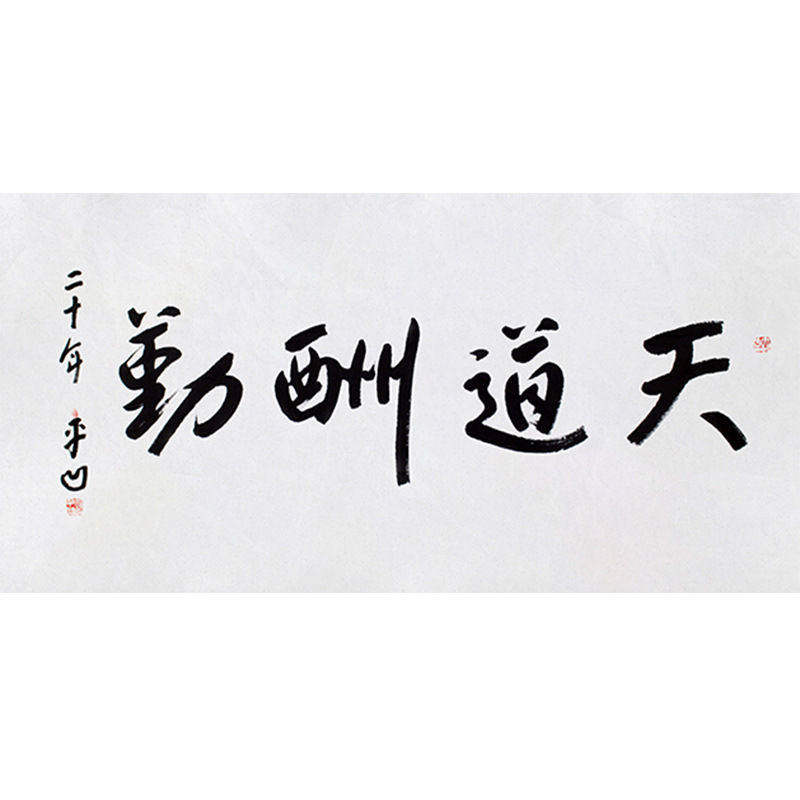 天道酬勤
二十年 平凹